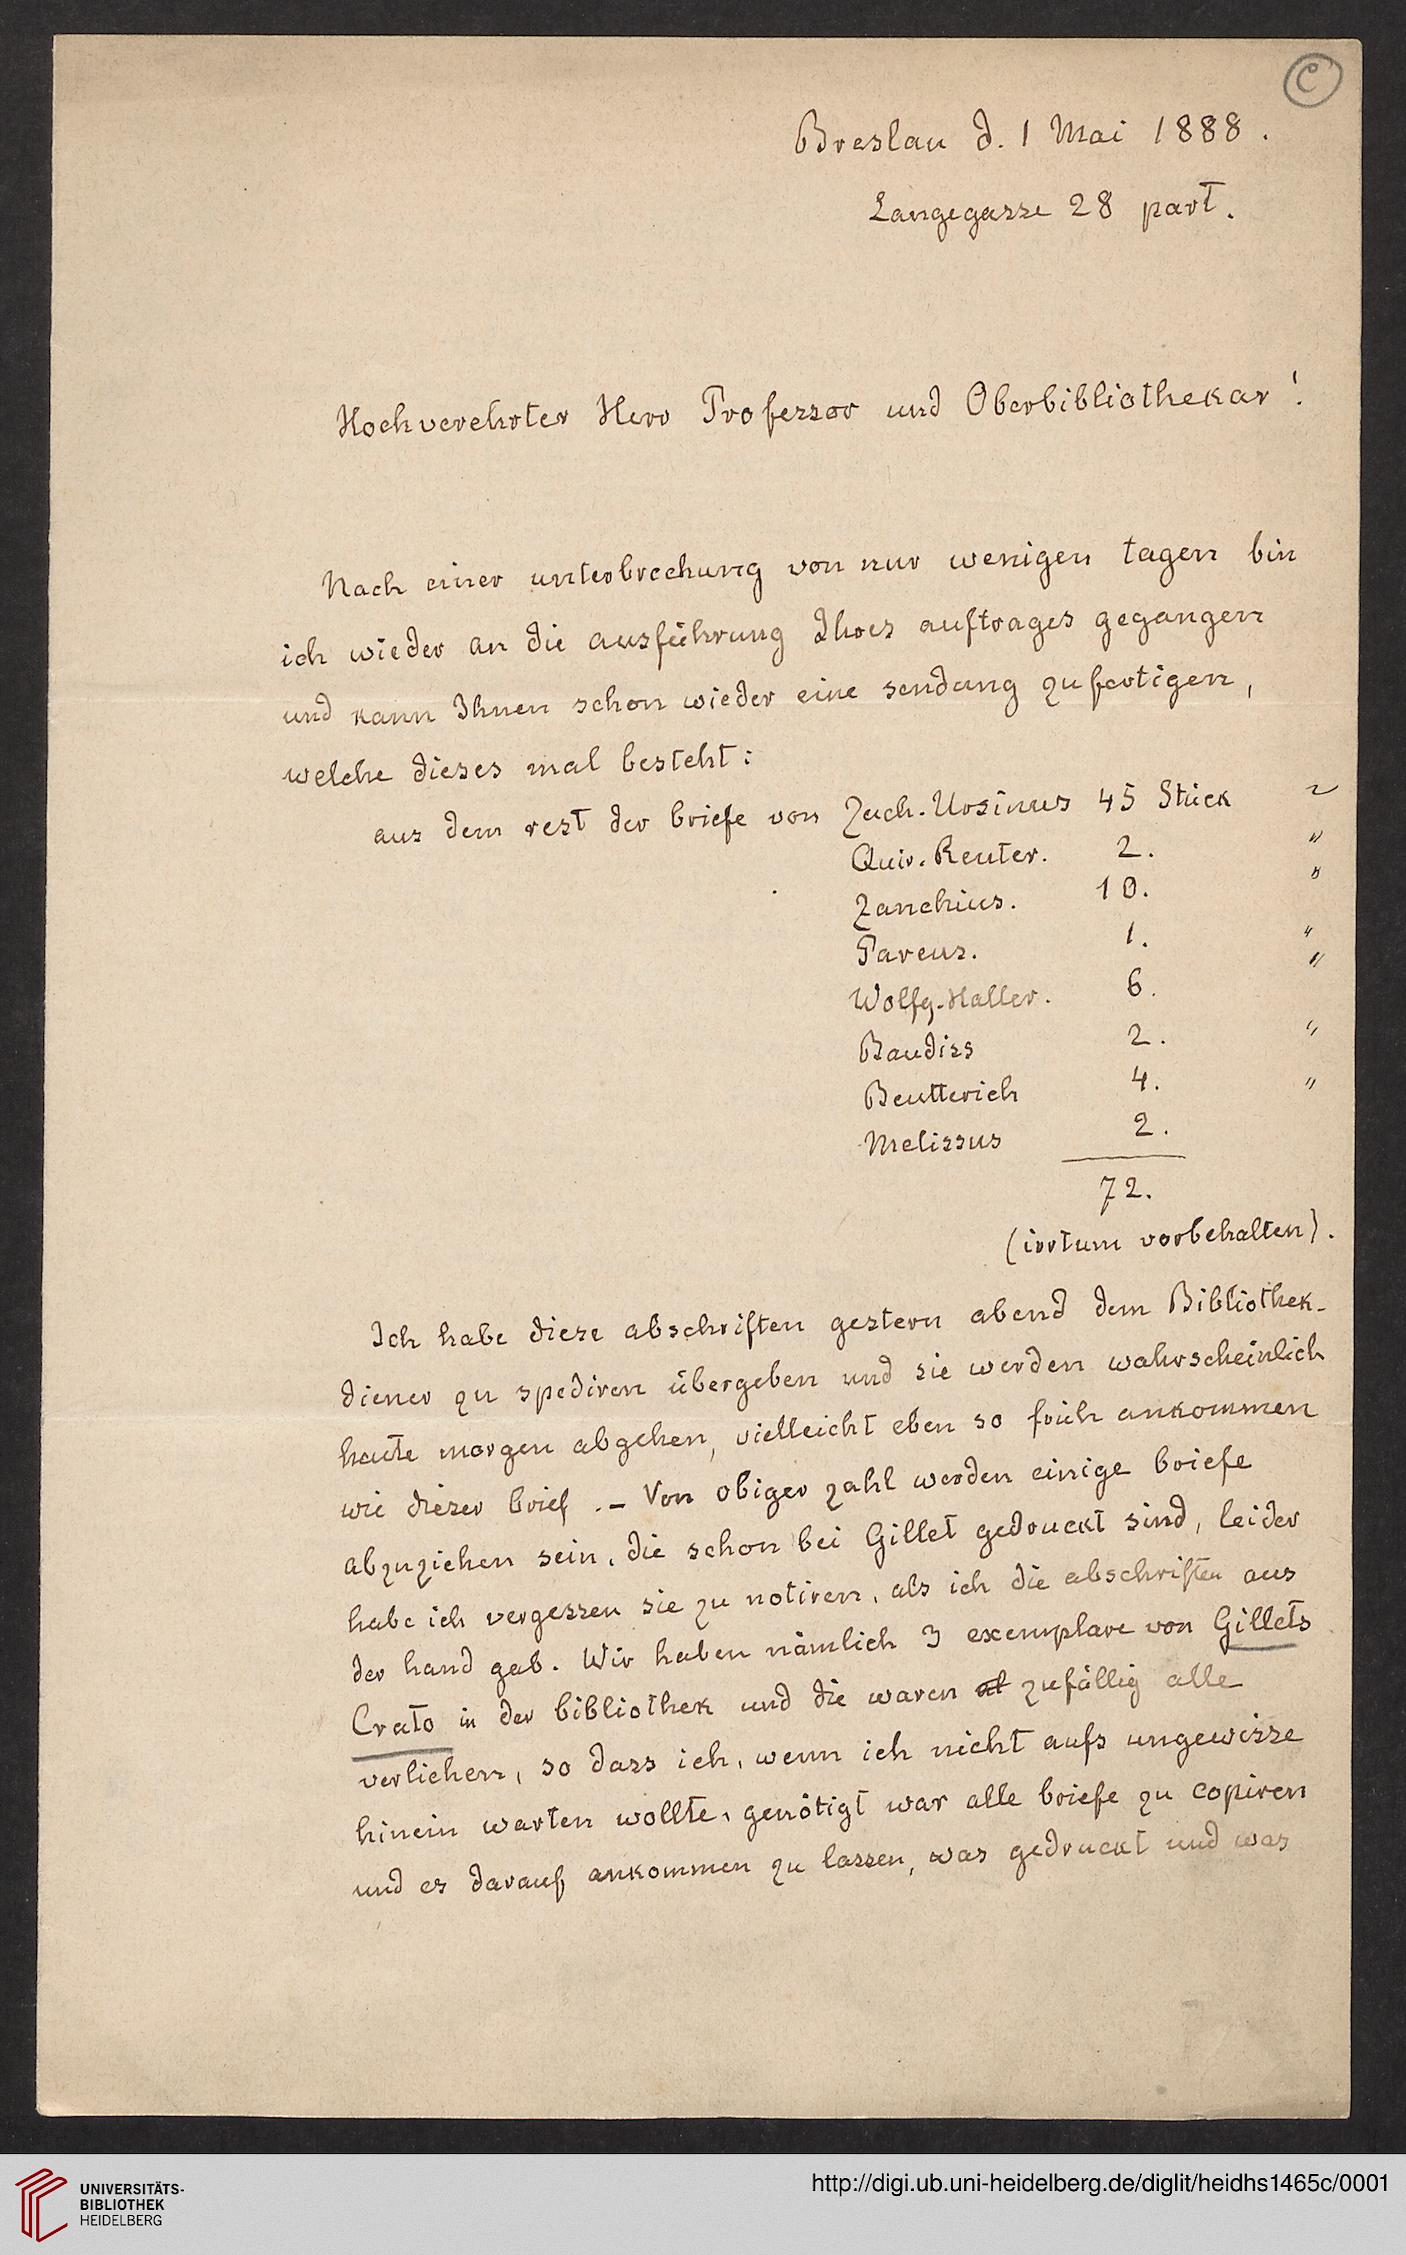 C
Breslau d. 1 Mai 1888.
Langegasse 28 part.
Hochverehrter Herr Professor und Oberbibliothekar!
Nach einer unterbrechung von nur wenigen tagen bin
ich wieder an die ausführung Ihres auftrages gegangen
und kann Ihnen schon wieder eine sendung zufertigen,
welche dieses mal besteht:
aus dem rest der briefe von Zach. Ursinus 45 Stück
Quir. Reuter. 2. "
Zanchius. 10. "
Pareus. 1. "
Wolfg. Haller. 6. "
Baudiss 2. "
Beutterich 4. "
Melissus 2.
72.
(irrtum vorbehalten).
Ich habe diese abschriften gestern abend dem Bibliothek-
diener zu spediren übergeben und sie werden wahrscheinlich
heute morgen abgehen, vielleicht eben so früh ankommen
wie dieser brief. – Von obiger zahl werden einige briefe
abzuziehen sein, die schon bei Gillet gedruckt sind, leider
habe ich vergessen sie zu notiren, als ich die abschriften aus
der hand gab. Wir haben nämlich 3 exemplare von Gillets
Crato in der bibliothek und die waren al zufällig alle
verliehen, so dass ich, wenn ich nicht aufs ungewisse
hinein warten wollte, genötigt war alle briefe zu copiren
und es darauf ankommen zu lassen, was gedruckt und was
UNIVERSITÄTS-
BIBLIOTHEK
HEIDELBERG
http://digi.ub.uni-heidelberg.de/diglit/heidhs1465c/0001